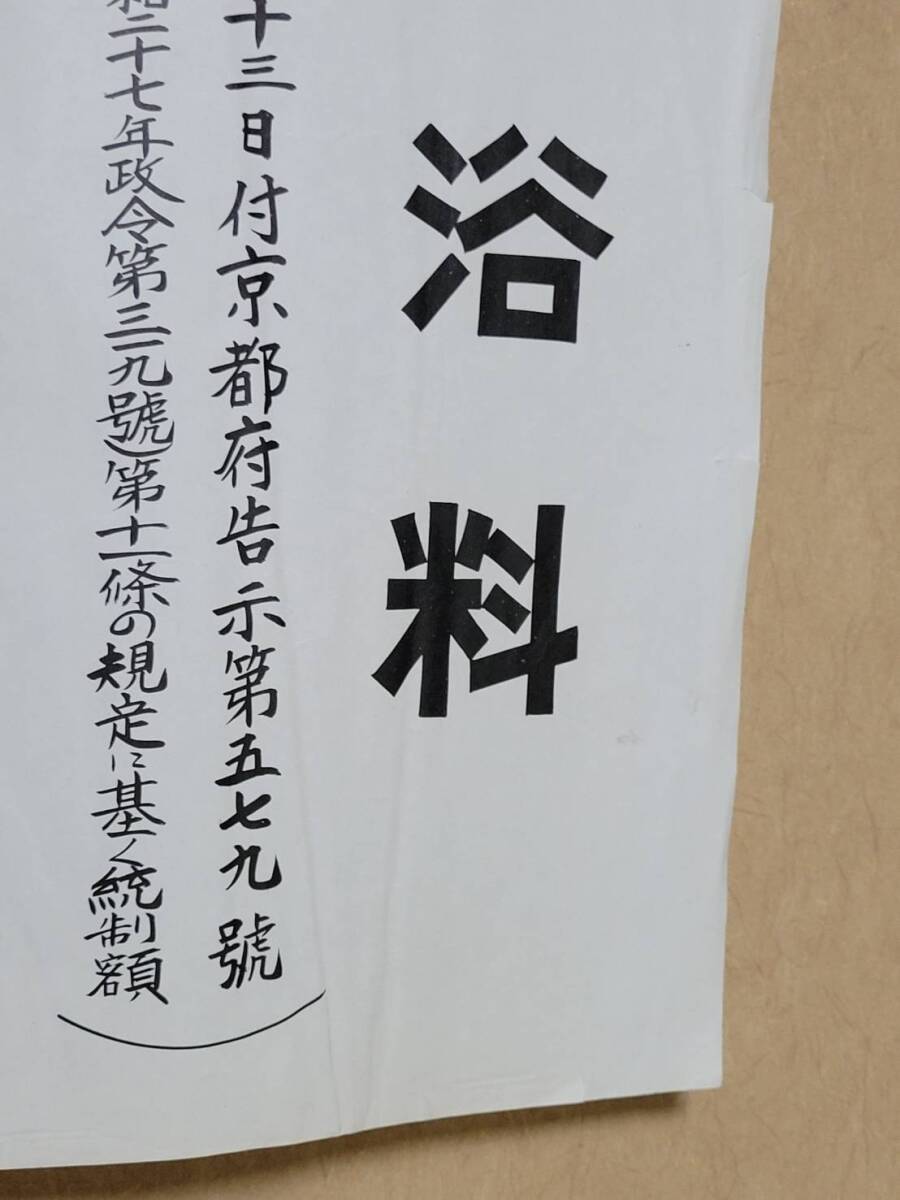 浴料
十三日付京都府告示第五七九號
和二十七年政令第三一九號)第十一條の規定に基く統制額)